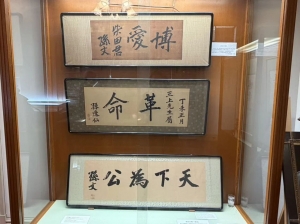 博愛
柴田君
孫文
丁未正月
三上先生屬
革命
孫逸仙
天下為公
孫文